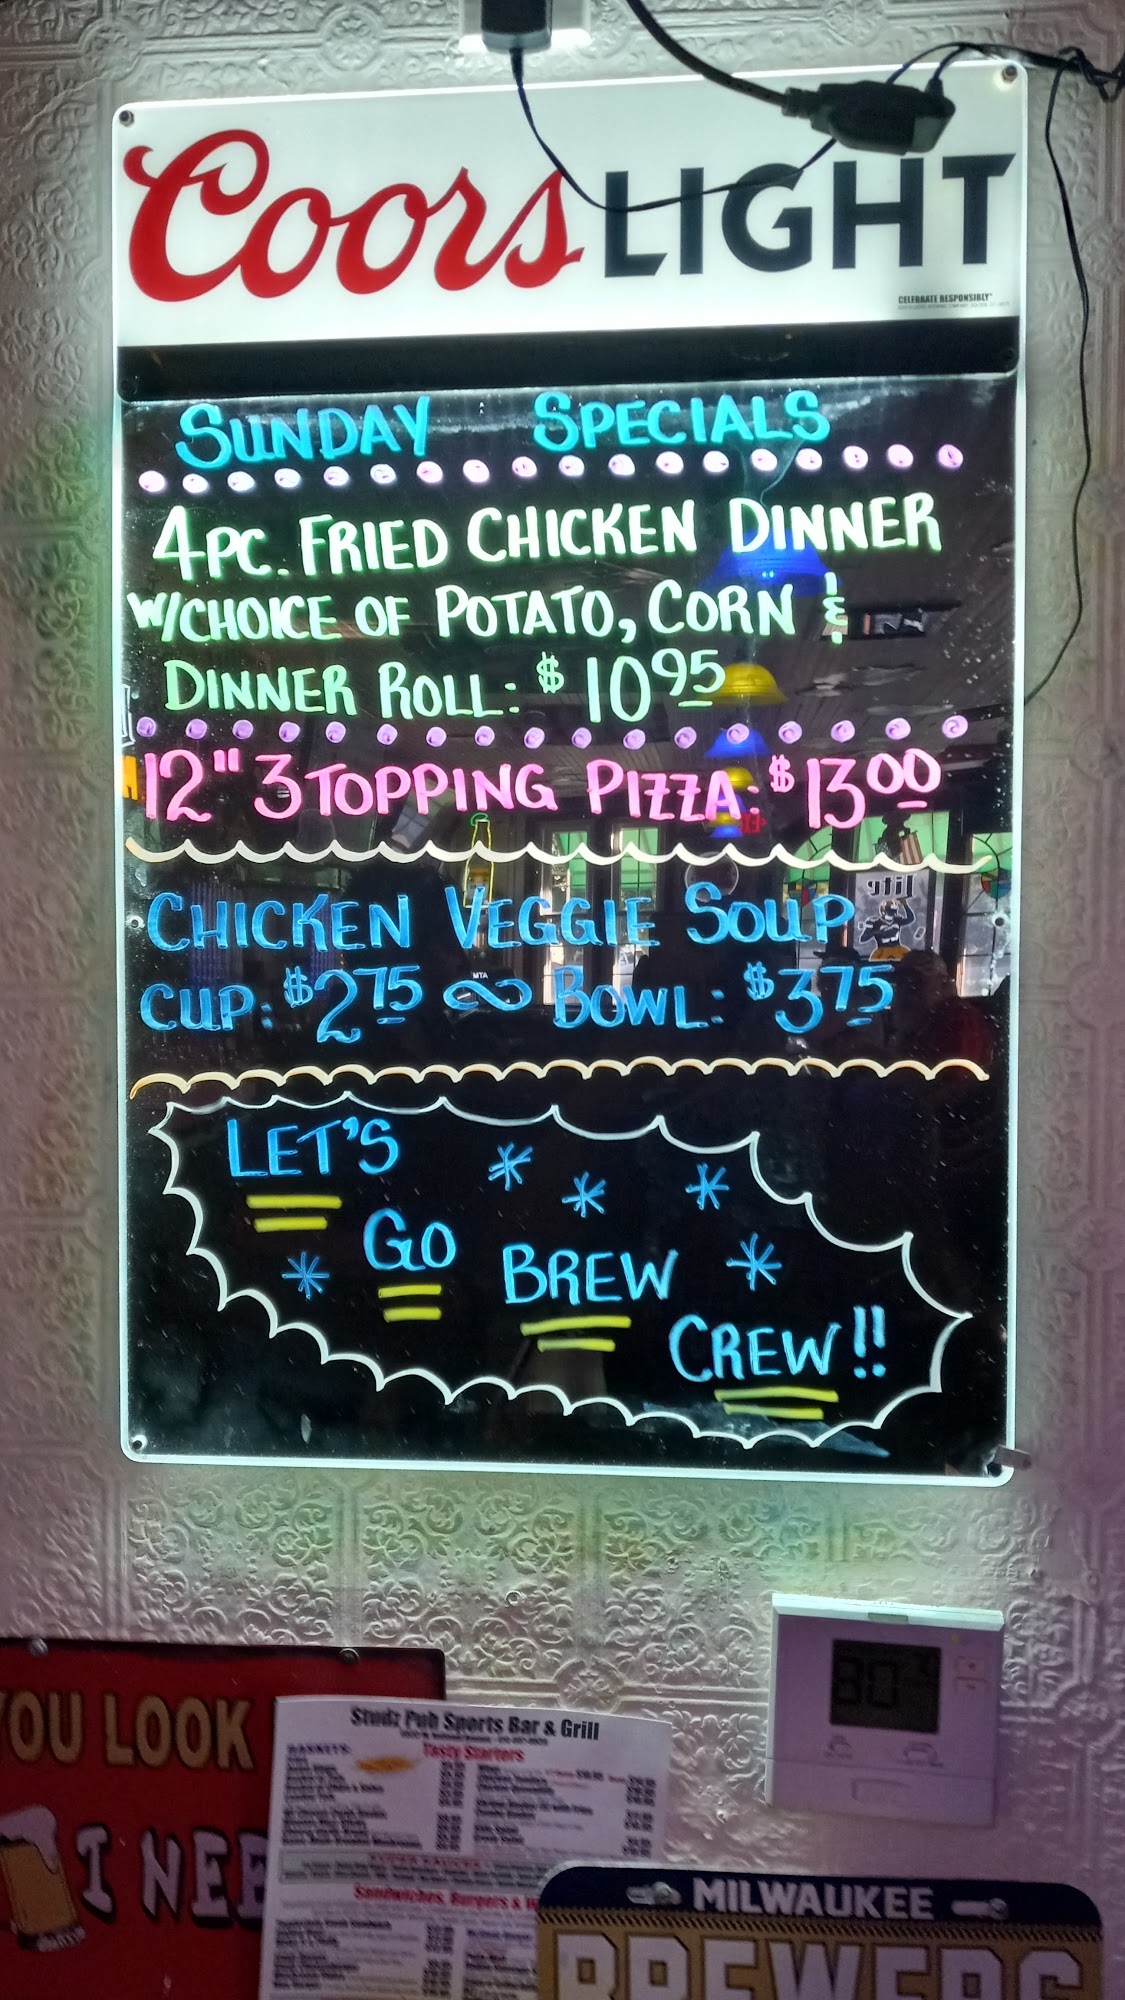 Coors LIGHT
CELEBRATE RESPONSIBLY
SUNDAY SPECIALS
4PC. FRIED CHICKEN DINNER
W/CHOICE OF POTATO, CORN &
DINNER ROLL: $10 95
12" 3 TOPPING PIZZA: $13 00
CHICKEN VEGGIE SOUP
CUP: $2 75 ~ BOWL: $3 75
LET'S
GO
BREW
CREW!!
YOU LOOK
I NEE
Studz Pub Sports Bar & Grill
Tasty Starters
Sandwiches, Burgers &
MILWAUKEE
BREWERS